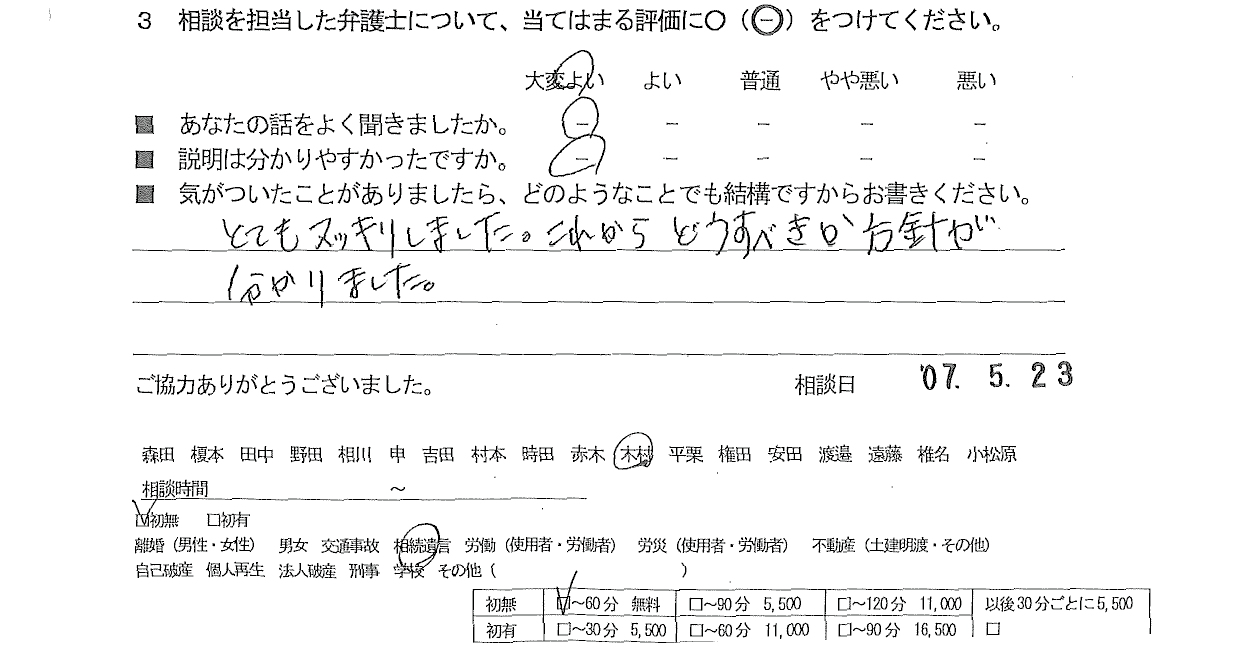 3 相談を担当した弁護士について、当てはまる評価に○(㊀)をつけてください。
大変よい よい 普通 やや悪い 悪い
■ あなたの話をよく聞きましたか。 − − − − −
■ 説明は分かりやすかったですか。 − − − − −
■ 気がついたことがありましたら、どのようなことでも結構ですからお書きください。
とてもスッキリしました。これからどうすべきか方針が
分かりました。
ご協力ありがとうございました。 相談日 '07. 5. 23
森田 榎本 田中 野田 相川 申 吉田 村本 時田 赤木 木村 平栗 権田 安田 渡邉 遠藤 椎名 小松原
相談時間 ～
☑初無 □初有
離婚(男性・女性) 男女 交通事故 相続遺言 労働(使用者・労働者) 労災(使用者・労働者) 不動産(土建明渡・その他)
自己破産 個人再生 法人破産 刑事 学校 その他( )
初無 ☑～60分 無料 □～90分 5,500 □～120分 11,000 以後30分ごとに5,500
初有 □～30分 5,500 □～60分 11,000 □～90分 16,500 □